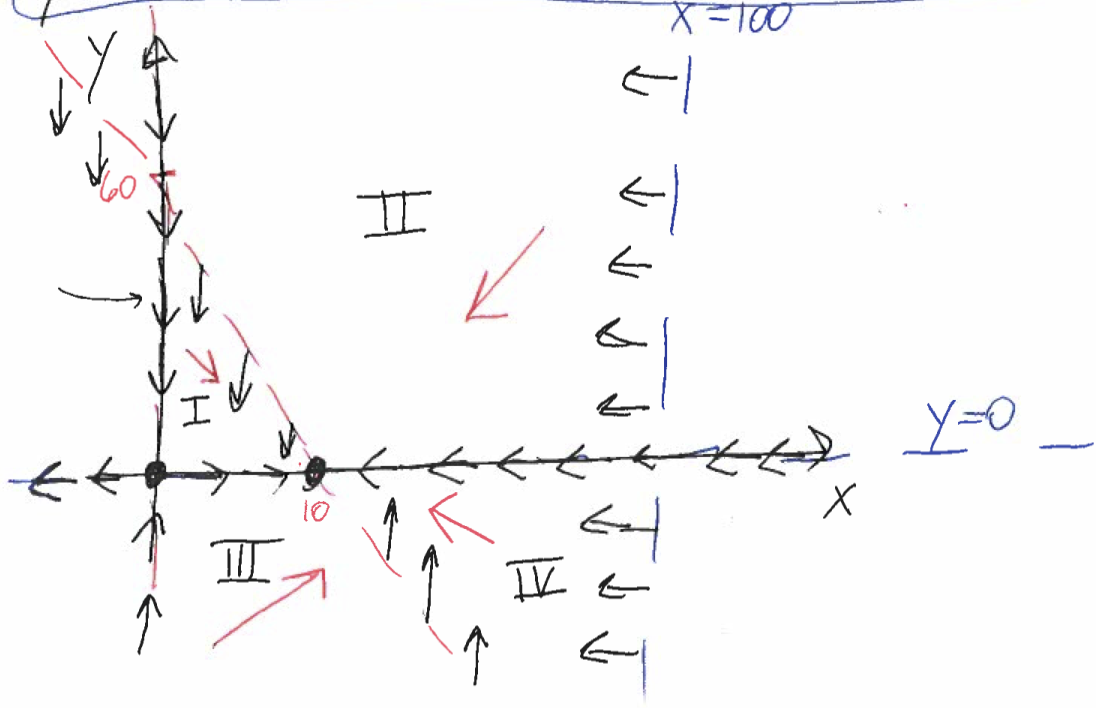 X=100
Y
60
II
I
Y=0
10
X
III
IV